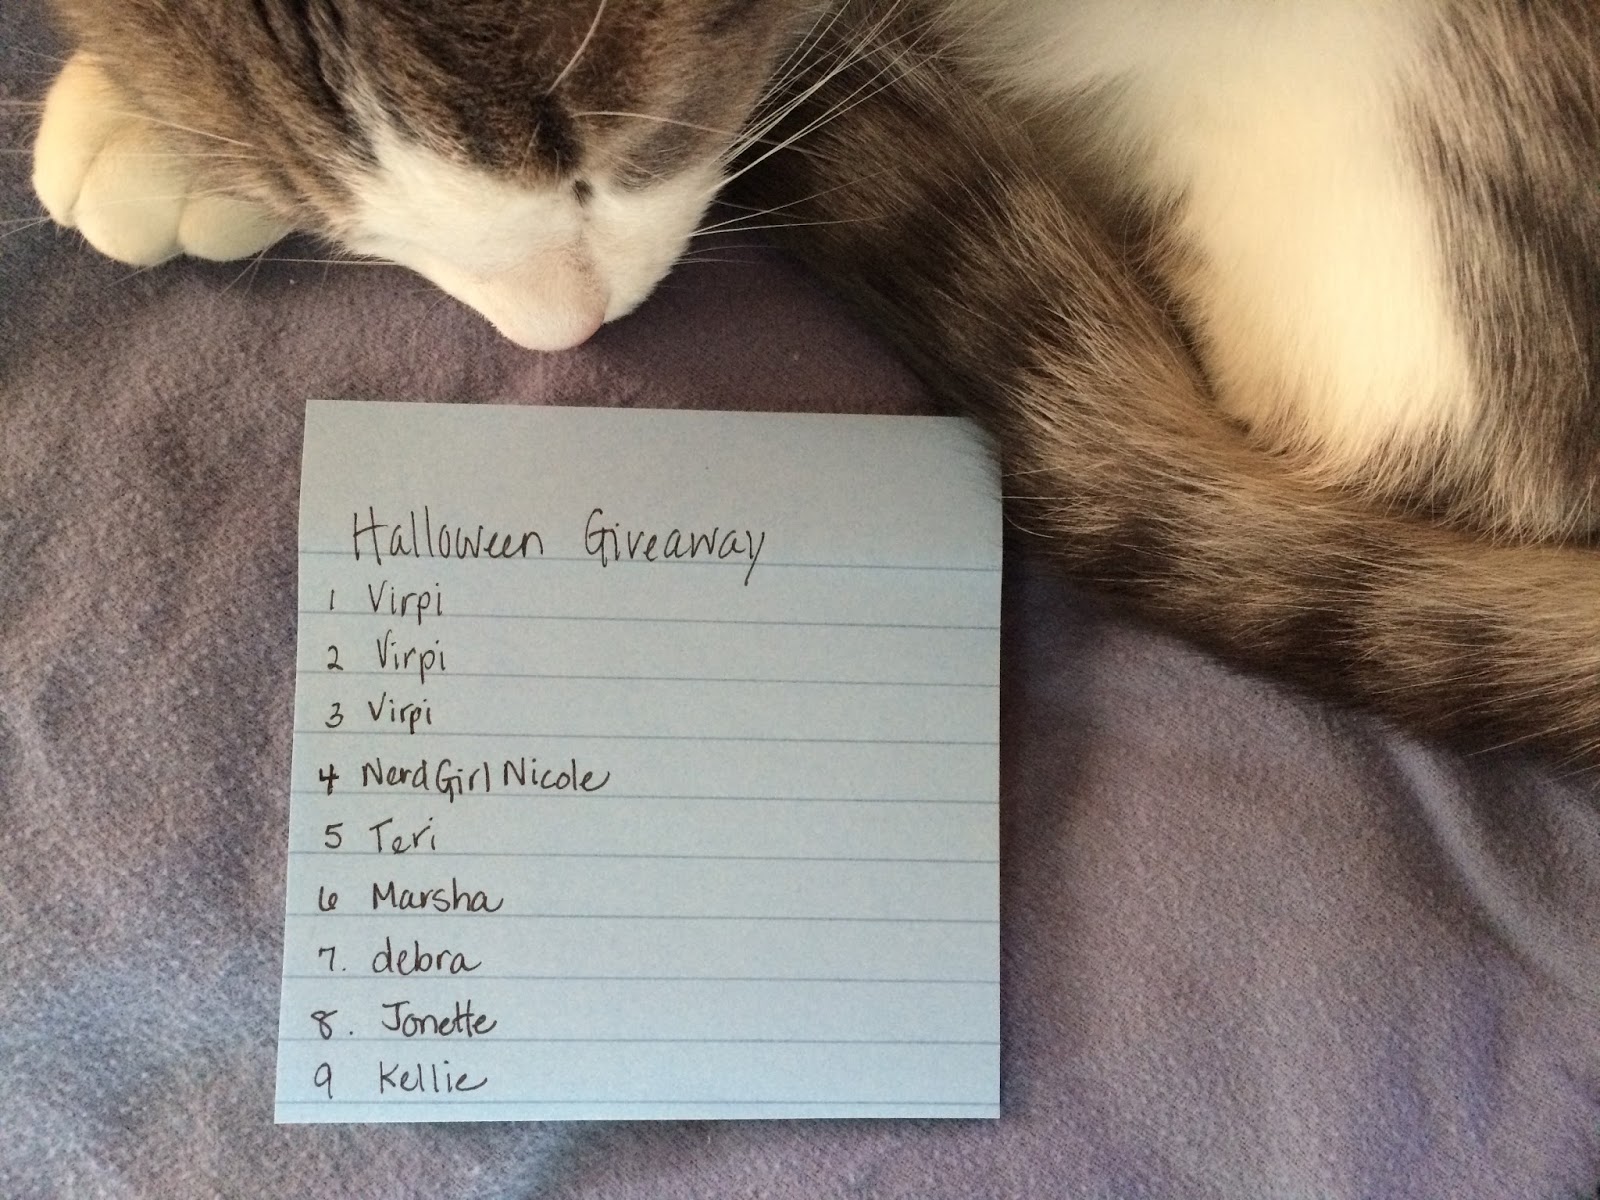 Halloween Giveaway
1 Virpi
2 Virpi
3 Virpi
4 NerdGirl Nicole
5 Teri
6 Marsha
7. debra
8. Jonette
9 Kellie